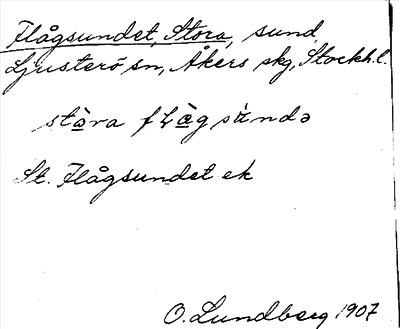 Flågsundet, Stora, sund,
Ljusterö sn, Åkers skg, Stockh.l.
stɑ̀ra flɑ̀g sùndə
St. Flågsundet ek
O. Lundberg 1907